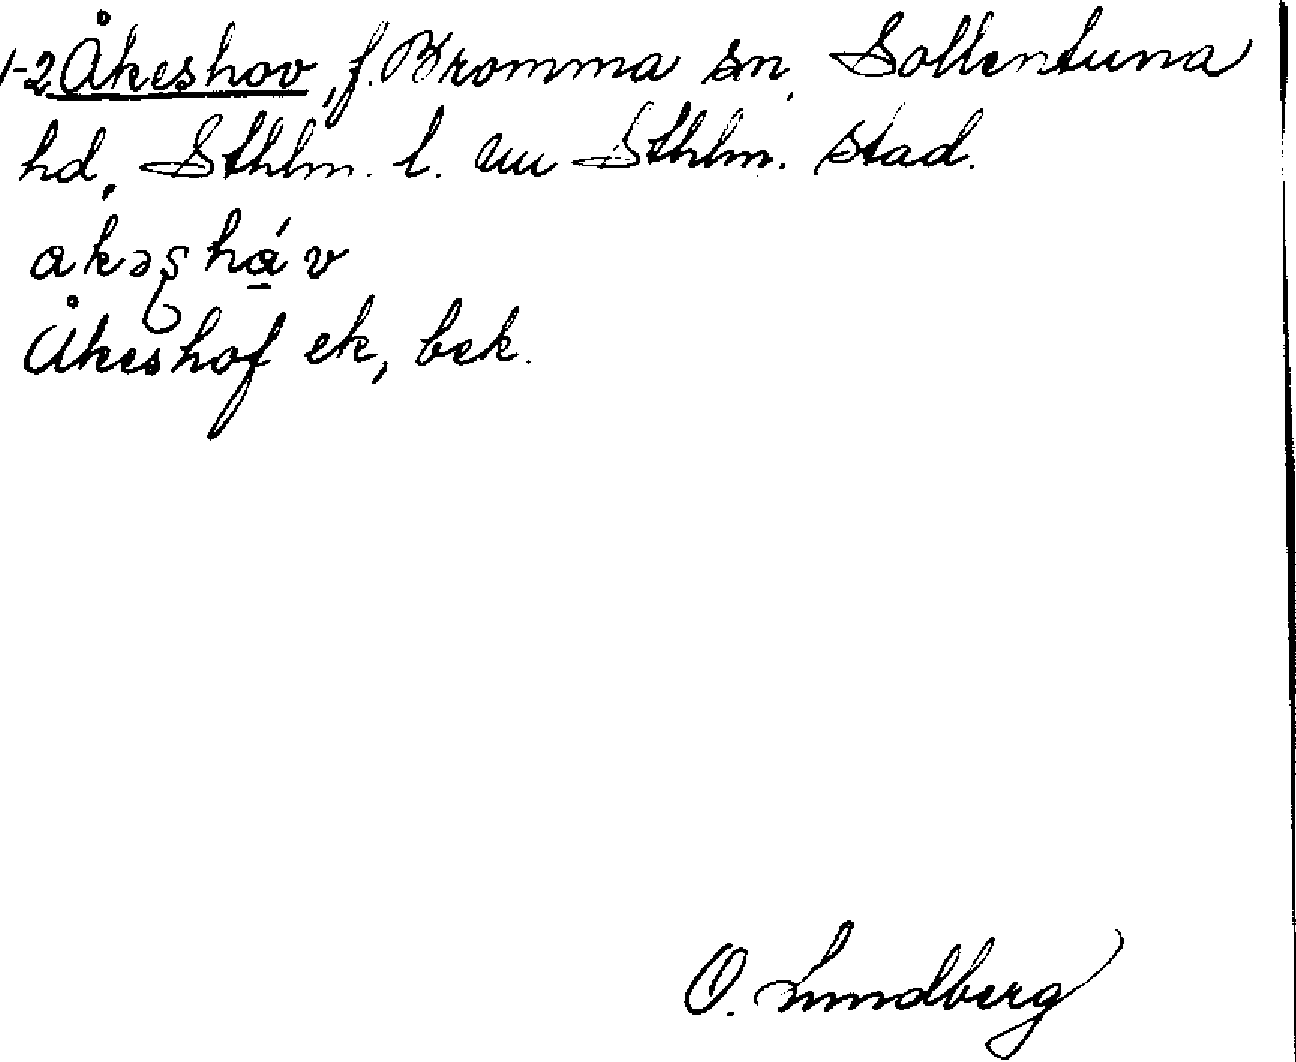 1-2 Åkeshov, f. Bromma sn, Sollentuna
hd, Sthlm. l. nu Sthlm. stad.
akəʂ há̱v
Åkeshof ek, bek.
O. Lundberg